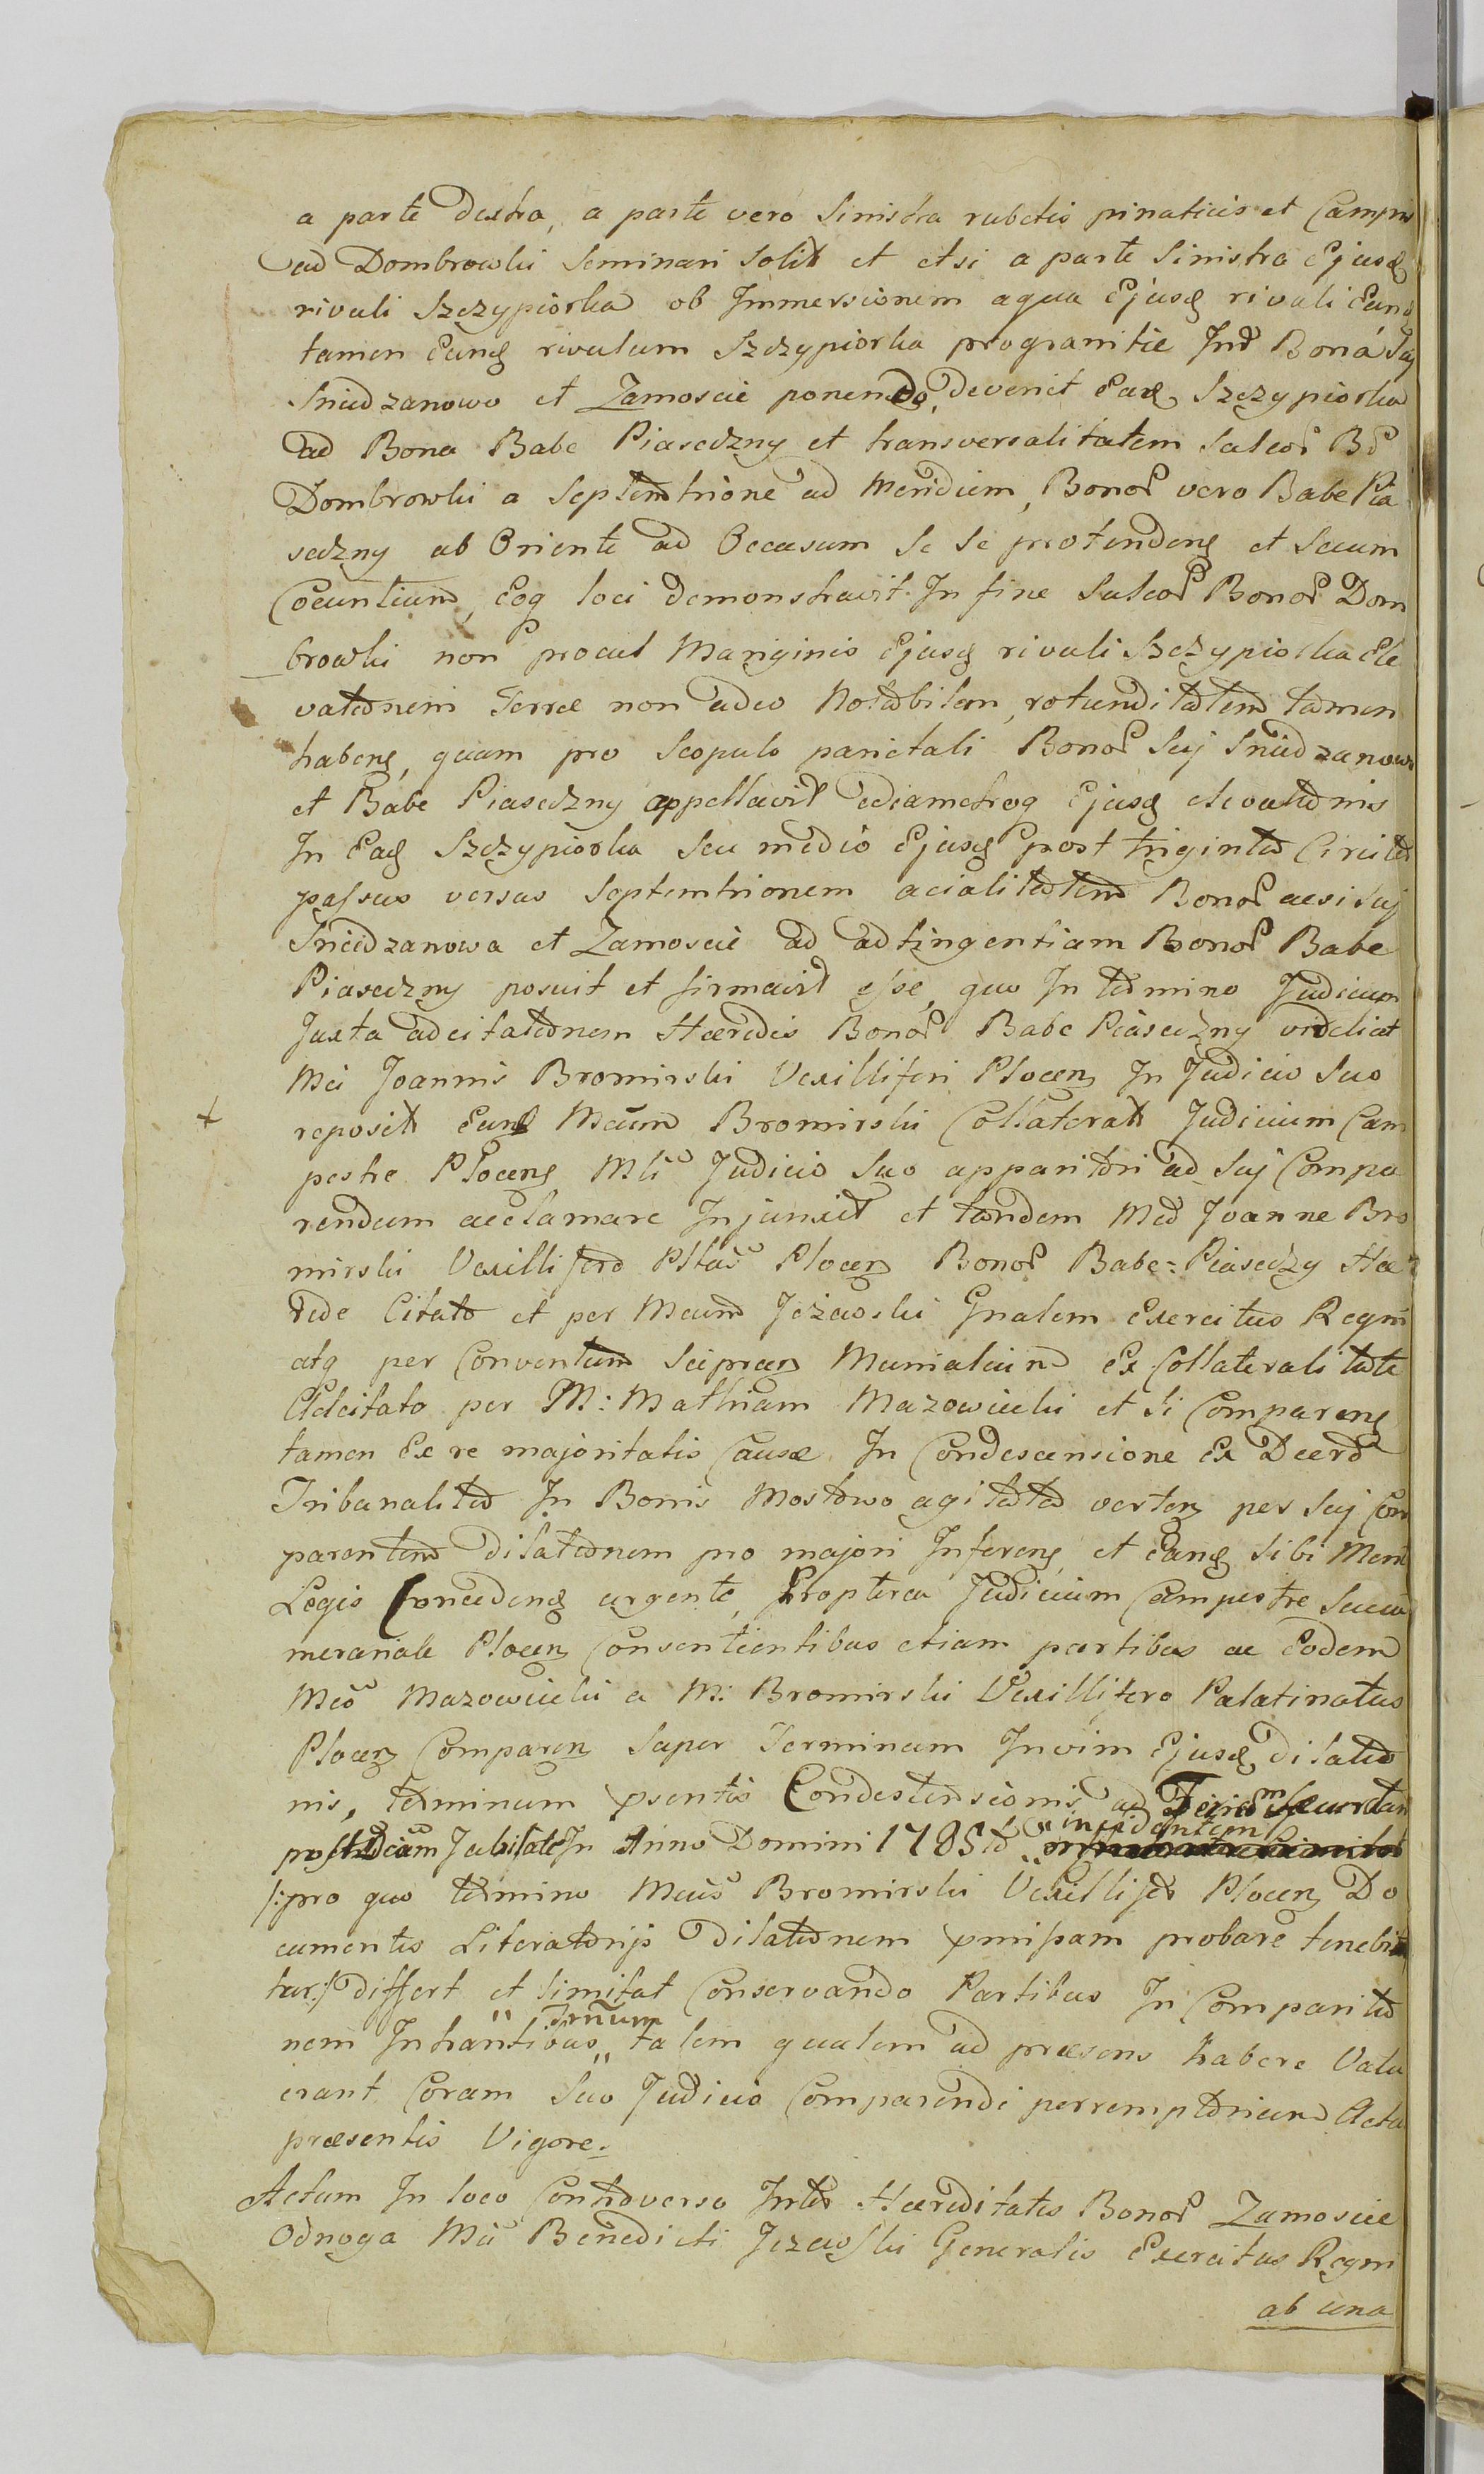 a parte dextra, a parte vero Sinistra rubetis pinaticis et Campis
ad Dombrowski Seminari Solit et etsi a parte Sinistra Ejusd
rivuli Szczypiorka ob Immersionem aqua Ejusd rivuli Eand
tamen Eund rivulum Szczypiorka pro granitie Int Bona Suj
Sniedzanowo et Zamoscie ponendo, devenit Ead Szczypiorka
ad Bona Babe Piaseczny et transversalitatem Sulcor Bor
Dombrowski a Septemtrione ad Meridiem, Bonor vero Babe Pia
seczny ab Oriente ad Occasum Se Se protendens et Secum
Coeuntium, Eoq loci demonstravit. In fine Sulcor Bonor Dom
browski non procul Marginis Ejusd rivuli Szczypiorka Ele
vationem Terræ non adeo Notabilem, rotunditatem tamen
habens, quam pro Scopulo parietali Bonor Suj Sniedzanowo
et Babe Piaseczny appellavit ediametroq Ejusd elevationis
In Ead Szczypiorka Seu medio Ejusd post triginta Circiter
passus versus Septemtrionem acialitatem Bonor aesi Suj
Sniedzanowa et Zamoscie ad adtingentiam Bonor Babe
Piaseczny posuit et firmavit esse, quo In termino Judicium
Juxta adcitationem Hæredis Bonor Babe Piaseczny videlicet
Mci Joannis Bromirski Vexilliferi Plocen In Judicio Suo
reposit Eund Mcum Bromirski Collateralt Judicium Cam
pestre Plocens Mli Judicio Suo apparitori ad Suj Compa
rendum acclamare Injunxit et tandem Mco Joanne Bro
mirski Vexillifero Pltus Plocen Bonor Babe=Piaseczy Hæ
rede Citato et per Mcum Jeżewski Gnalem Exercitus Regni
atq per Conventum Scipcen Munialium Ex Collateralitate
Adcitato per M: Mathiam Mazowiecki et Si Comparens
tamen Ex re majoritatis Causæ In Condescensione Ex Decrto
Tribunalito In Bonis Mostowo agitata verten per Suj Com
parentem dilationem pro majori Inferens et Eand Sibi Mente
Legis Concedend urgente, Propterea Judicium Campestre Succa
merariale Plocen Consentientibus etiam partibus ac Eodem
Mco Mazowiecki a M: Bromirski Vexillifero Palatinatus
Plocen Comparen Super Terminum Invim Ejusd dilatio
nis, terminum psentis Condescensionis ad Feriam Secundam
post Dcam Jubilate In Anno Domini 1785to incidentem
/:pro quo termino Mcus Bromirski Vexillifer Plocen Do
cumentis Literatorijs dilationem pmissam probare tenebi
tur:/ differt et limitat Conservando Partibus In Comparitio
nem Intrantibus Trnum talem qualem ad præsens habere Valu
erant Coram Suo Judicio Comparendi perremptorium Actu
præsentis Vigore.
Actum In loco Controverso Inter Hæreditates Bonor Zamoscie
Odnoga Mci Benedicti Jezewski Generalis Exercitus Regni
ab una